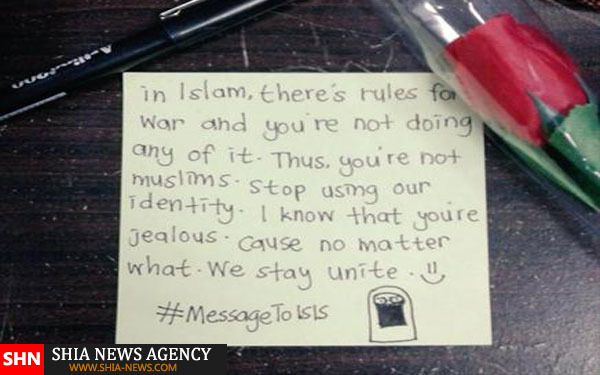 in Islam, there's rules for
war and you're not doing
any of it. Thus, you're not
muslims. Stop using our
identity. I know that you're
jealous. cause no matter
what. We stay unite.
#MessageToISIS
SHN SHIA NEWS AGENCY
WWW.SHIA-NEWS.COM